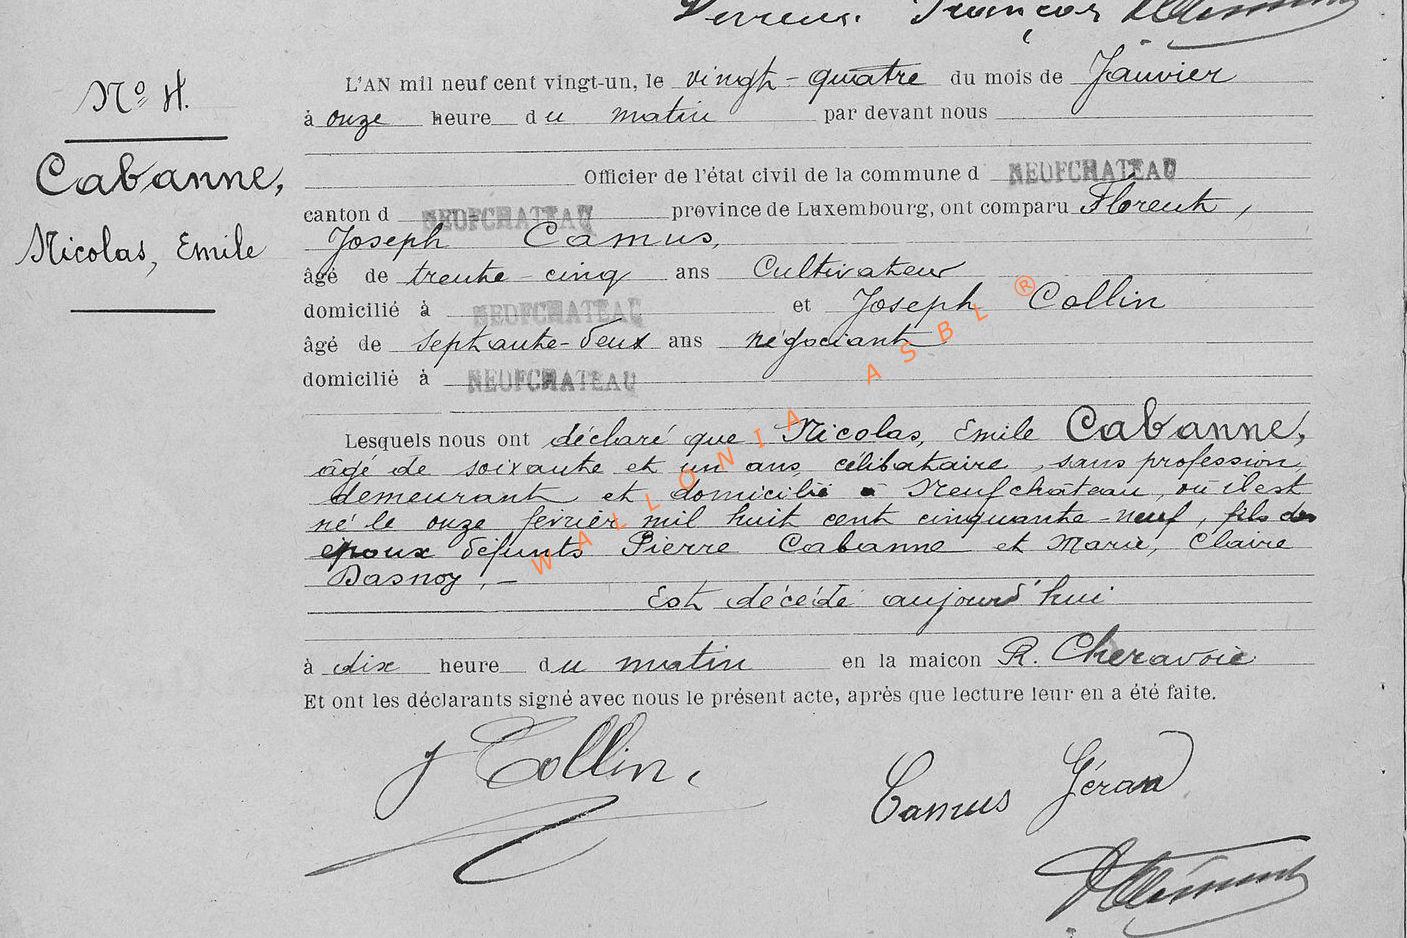 François
No 4.
Cabanne,
Nicolas, Emile
L'AN mil neuf cent vingt-un, le vingt-quatre du mois de Janvier
à onze heure du matin par devant nous
Officier de l'état civil de la commune d NEUFCHATEAU
canton d NEUFCHATEAU province de Luxembourg, ont comparu Florent,
Joseph Camus,
âgé de trente-cinq ans Cultivateur
domicilié à NEUFCHATEAU et Joseph Collin
âgé de septante-deux ans négociant
domicilié à NEUFCHATEAU
Lesquels nous ont déclaré que Nicolas, Emile Cabanne,
âgé de soixante et un ans, célibataire, sans profession
demeurant et domicilié à Neufchâteau, où il est
né le onze février mil huit cent cinquante-neuf, fils des
époux défunts Pierre Cabanne et Marie, Claire
Dasnoy, —
Est décédé aujourd'hui
à dix heure du matin en la maicon R. Cheravoie
Et ont les déclarants signé avec nous le présent acte, après que lecture leur en a été faite.
J Collin,
Camus Gérard
WALLONIA ASBL ®